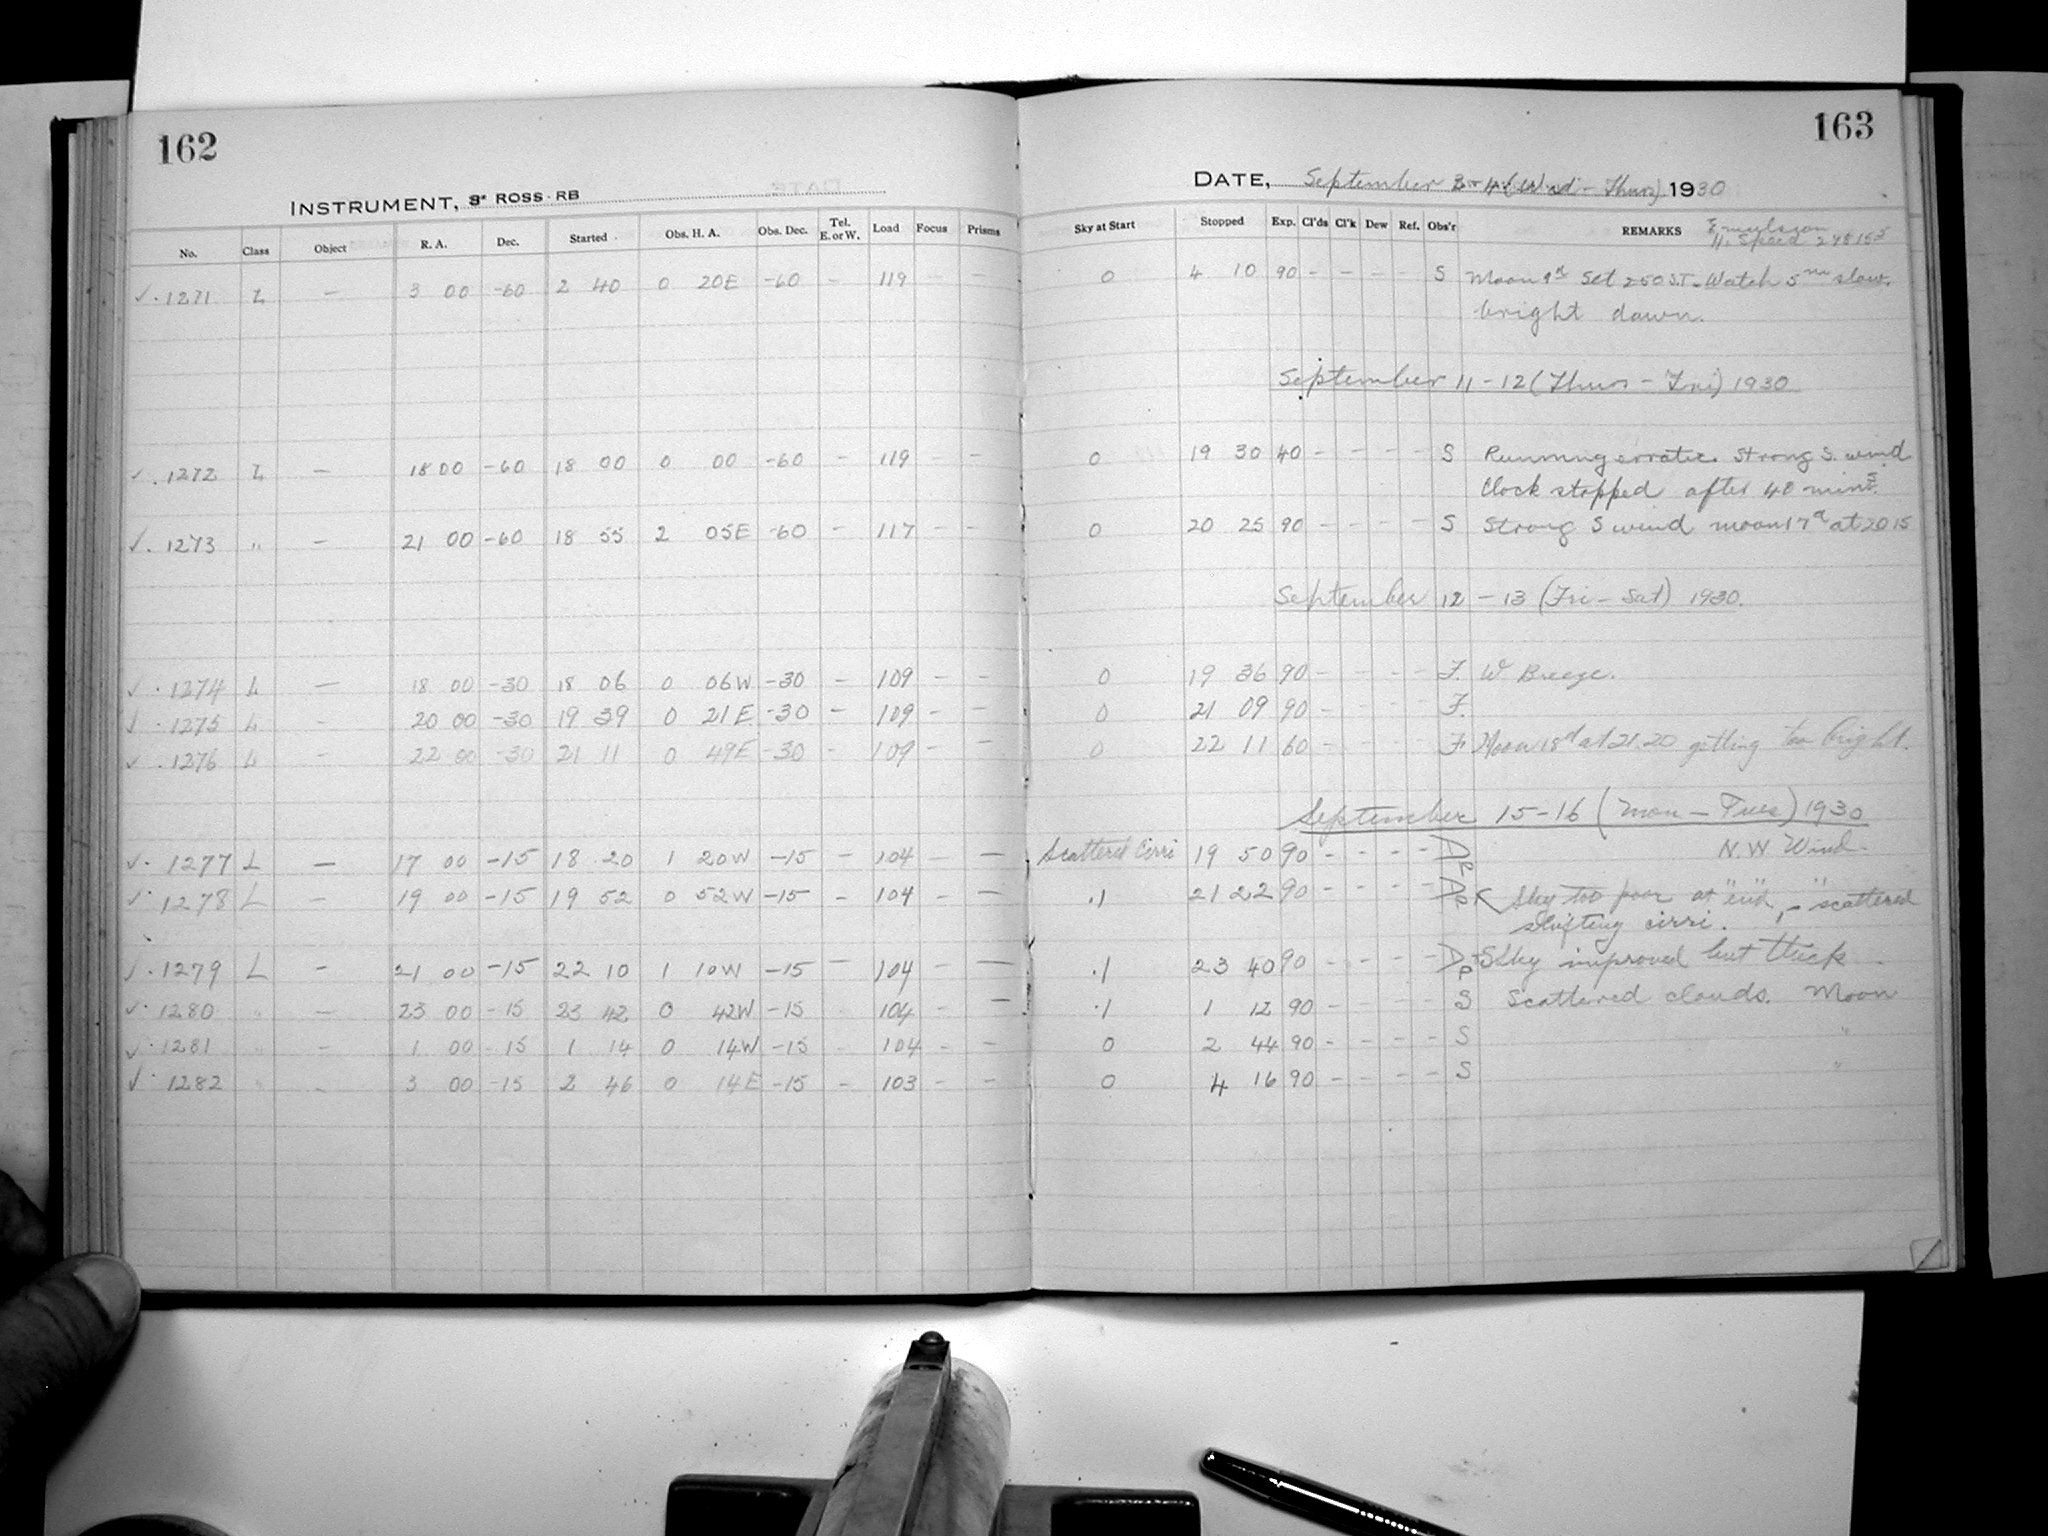 162
INSTRUMENT, 3" ROSS-RB
No. Class Object R. A. Dec. Started Obs. H. A. Obs. Dec. Tel. E. or W. Load Focus Prisms
✓ · 1271 L — 3 00 -60 2 40 0 20E -60 - 119 - -
✓ · 1272 L — 18 00 -60 18 00 0 00 -60 - 119 - -
✓ · 1273 " — 21 00 -60 18 55 2 05E -60 - 117 - -
✓ · 1274 L — 18 00 -30 18 06 0 06W -30 - 109 - -
✓ · 1275 L - 20 00 -30 19 39 0 21E -30 - 109 - -
✓ · 1276 L - 22 00 -30 21 11 0 49E -30 - 109 - -
✓ · 1277 L — 17 00 -15 18 20 1 20W -15 - 104 - —
✓ · 1278 L - 19 00 -15 19 52 0 52W -15 - 104 - —
✓ · 1279 L - 21 00 -15 22 10 1 10W -15 - 104 - —
✓ · 1280 " - 23 00 -15 23 42 0 42W -15 104 - —
✓ · 1281 " - 1 00 -15 1 14 0 14W -15 - 104 - -
✓ · 1282 " - 3 00 -15 2 46 0 14E -15 - 103 - -
163
DATE, September (Wed - Thurs) 1930
Sky at Start Stopped Exp. Cl'ds Cl'k Dew Ref. Obs'r REMARKS Emulsion
H. Speed
0 4 10 90 - - - - S Moon 9d Set 250 S.T. Watch 5m slow.
bright dawn.
September 11-12 (Thurs - Fri) 1930
0 19 30 40 - - - - S Running erratic. Strong S. wind
Clock stopped after 40 mins.
0 20 25 90 - - - - S Strong S wind moon 17d at 20 15
September 12 - 13 (Fri - Sat) 1930.
0 19 36 90 - - - - F. W Breeze.
0 21 09 90 - - - - F.
0 22 11 60 - - - - F. Moon 18d at 21.20 getting too bright.
September 15-16 (Mon - Tues) 1930
Scattered Cirri 19 50 90 - - - - DP N.W Wind.
.1 21 22 90 - - - - DP Sky too poor at end, - scattered
shifting cirri.
.1 23 40 90 - - - - DP-S Sky improved but thick
.1 1 12 90 - - - - S Scattered clouds. Moon
0 2 44 90 - - - - S "
0 4 16 90 - - - - S "